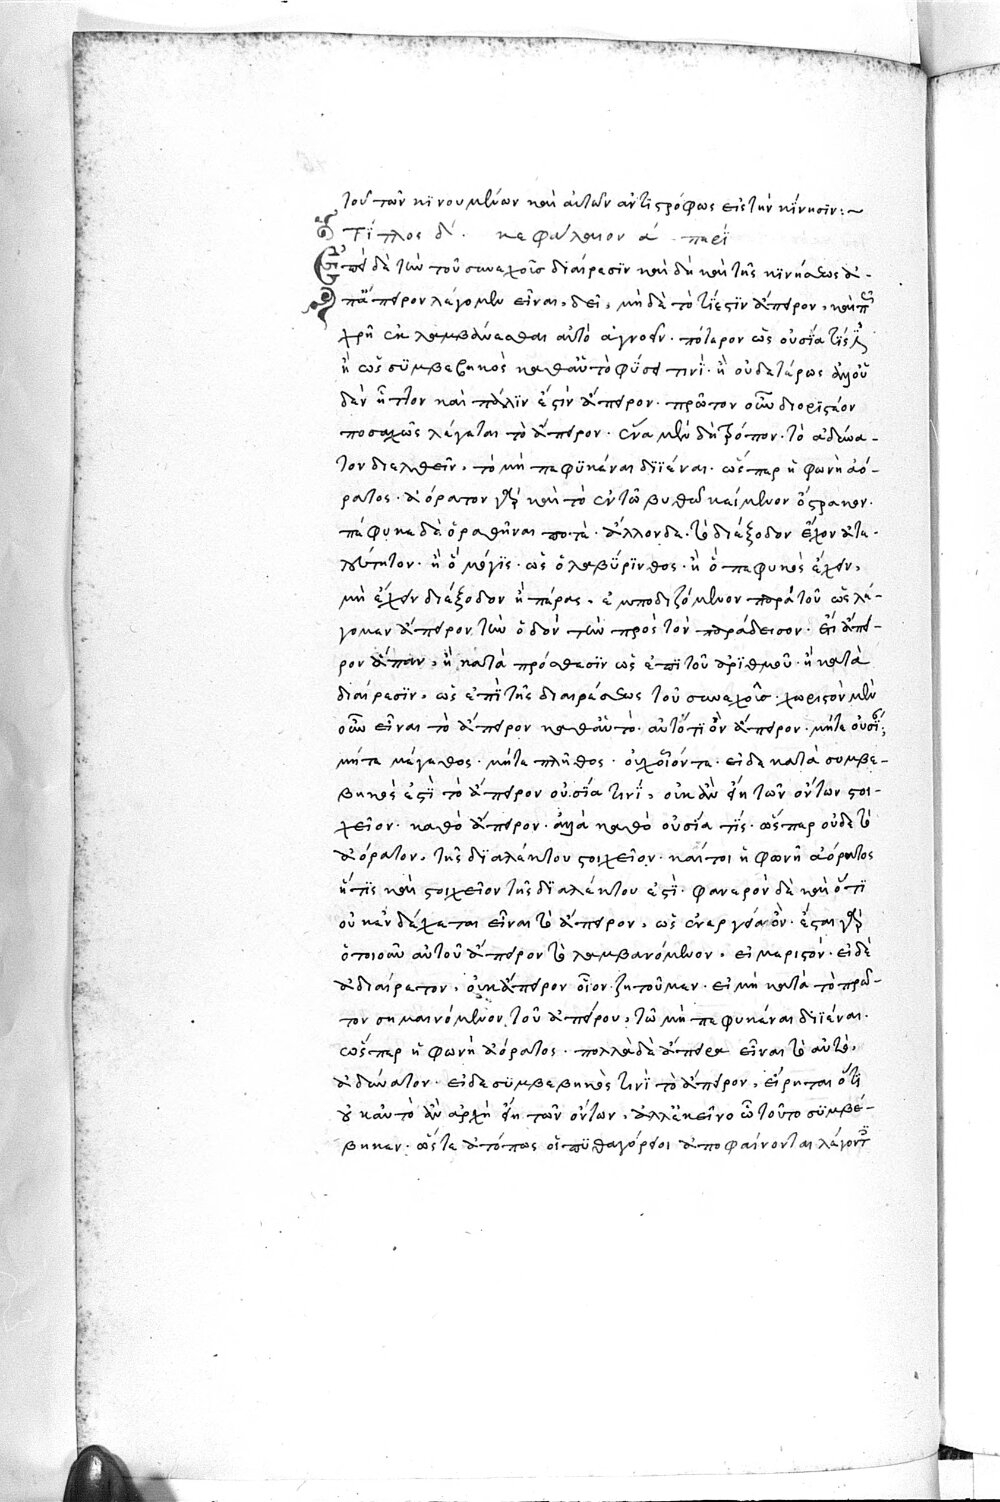 τοῦ τῶν κινουμένων καὶ αὐτῶν ἀντιστρόφως εἰς τὴν κίνησιν:~
Τίτλος δ´. κεφάλαιον α´ περὶ
Ἐπεὶ δὲ τὴν τοῦ συνεχοῦς διαίρεσιν καὶ δὴ καὶ τῆς κινήσεως ἀ-
πειρον λέγομεν εἶναι, δεῖ, μὴ δὲ τὸ τί ἐστιν ἄπειρον, καὶ π
χρὴ ἐκλαμβάνεσθαι αὐτὸ ἀγνοεῖν· πότερον ὡς οὐσία τίς
ἢ ὡς συμβεβηκὸς καθαὑτὸ φύσει τινί· ἢ οὐδετέρως ἀλλ' οὐ
δὲν ἧττον καὶ πάλιν ἐστὶν ἄπειρον· πρῶτον οὖν διοριστέον
ποσαχῶς λέγεται τὸ ἄπειρον· ἕνα μὲν δὴ τρόπον· τὸ ἀδύνα-
τον διελθεῖν, τὸ μὴ πεφυκέναι διϊέναι· ὥσπερ ἡ φωνὴ ἀό-
ρατος· ἀόρατον γὰρ καὶ τὸ ἐν τῷ βυθῷ κείμενον ὄστρακον·
πέφυκε δὲ ὁραθῆναι ποτέ· ἄλλον δὲ· τὸ διέξοδον ἔχον ἀτε-
λεύτητον· ἢ ὃ μόγις· ὡς ὁ λαβύρινθος· ἢ ὃ πεφυκὸς ἔχειν,
μὴ ἔχει διέξοδον ἢ πέρας, ἐμποδιζόμενον παρά του ὡς λέ-
γομεν ἄπειρον τὴν ὁδὸν τὴν πρὸς τὸν παράδεισον· ἔτι ἄπει-
ρον ἅπαν, ἢ κατὰ πρόσθεσιν ὡς ἐπὶ τοῦ ἀριθμοῦ· ἢ κατὰ
διαίρεσιν, ὡς ἐπὶ τῆς διαιρέσεως τοῦ συνεχοῦς· χωριστὸν μὲν
οὖν εἶναι τὸ ἄπειρον καθαὑτὸ· αὐτό τι ὂν ἄπειρον· μήτε
μήτε μέγεθος· μήτε πλῆθος· οὐχ οἷόν τε· εἰ δὲ κατὰ συμβε-
βηκὸς ἐστὶ τὸ ἄπειρον οὐσία τινί, οὐκ ἂν εἴη τῶν ὄντων στοι-
χεῖον· καθὸ ἄπειρον· ἀλλὰ καθὸ οὐσία τίς· ὥσπερ οὐδὲ τὸ
ἀόρατον, τῆς διαλέκτου στοιχεῖον· καίτοι ἡ φωνὴ ἀόρατος
ἥτις καὶ στοιχεῖον τῆς διαλέκτου ἐστὶ· φανερὸν δὲ καὶ ὅτι
οὐκ ἐνδέχεται εἶναι τὸ ἄπειρον, ὡς ἐνεργείᾳ ὄν· ἔσται γὰρ
ὁποιοῦν αὐτοῦ ἄπειρον τὸ λαμβανόμενον, εἰ μεριστόν· εἰ δὲ
ἀδιαίρετον, οὐκ ἄπειρον οἷον ζητοῦμεν· εἰ μὴ κατὰ τὸ πρῶ-
τον σημαινόμενον τοῦ ἀπείρου, τῷ μὴ πεφυκέναι διϊέναι·
ὥσπερ ἡ φωνὴ ἀόρατος· πολλὰ δὲ ἄπειρα εἶναι τὸ αὐτὸ,
ἀδύνατον· εἰ δὲ συμβεβηκὸς τινὶ τὸ ἄπειρον, εἴρηται ὅτι
οὐκ αὐτὸ ἂν ἀρχὴ εἴη τῶν ὄντων, ἀλλ' ἐκεῖνο ᾧ τοῦτο συμβέ-
βηκεν· ὥστε ἀτόπως οἱ πυθαγόρειοι ἀποφαίνονται λέγοντες